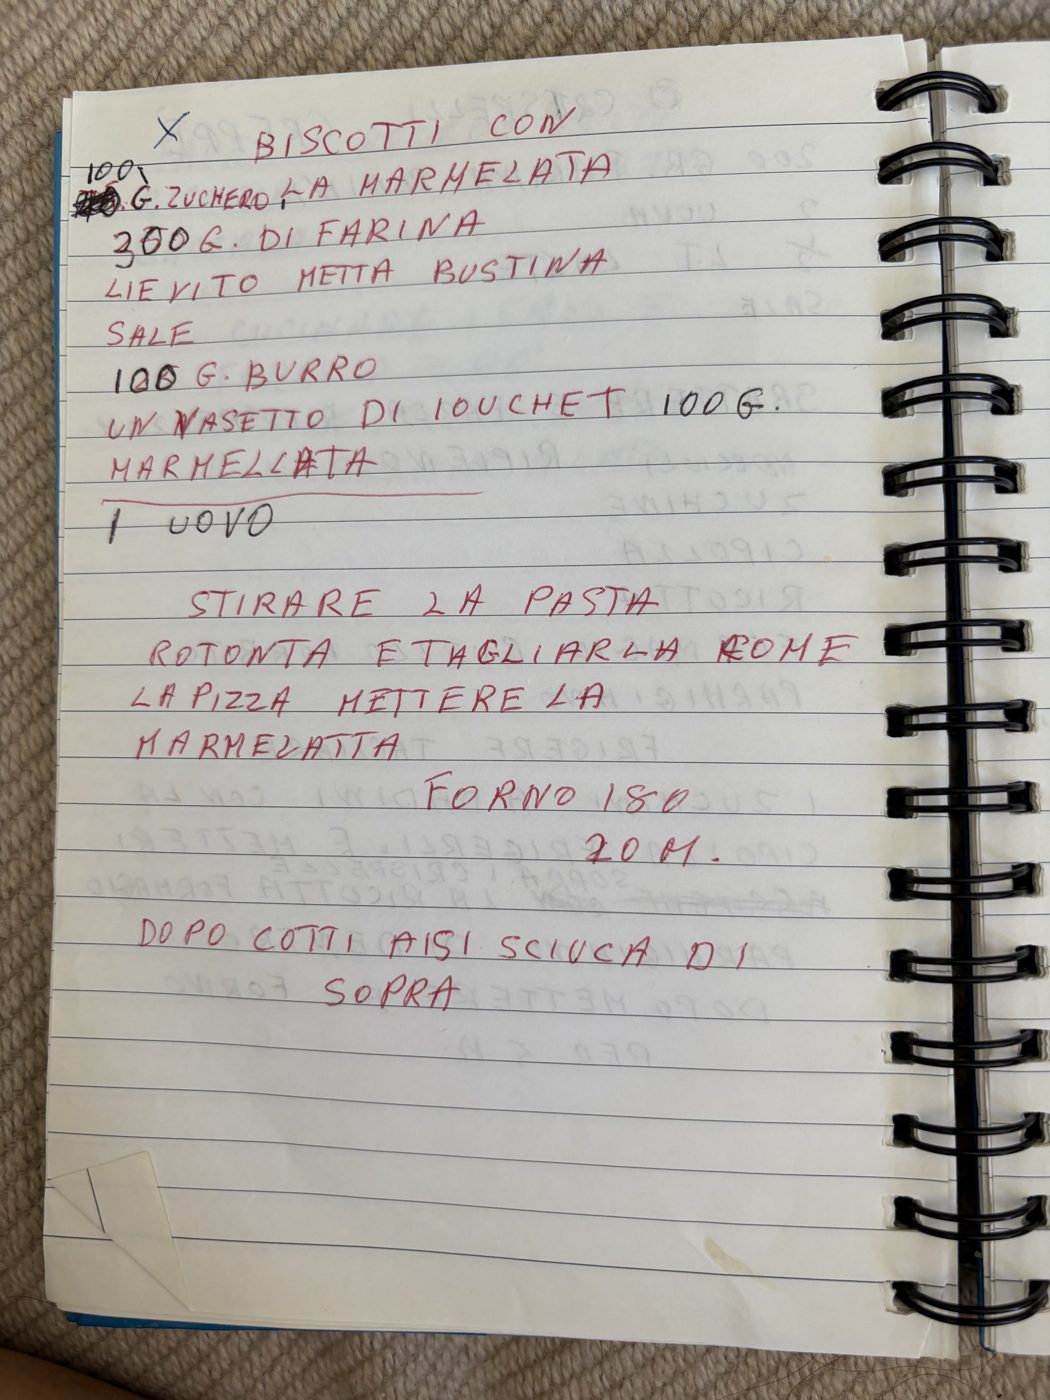 X BISCOTTI CON
100
G. ZUCHERO, LA MARMELATA
300 G. DI FARINA
LIEVITO METTA BUSTINA
SALE
100 G. BURRO
UN VASETTO DI IOUCHET 100 G.
MARMELLATA
1 UOVO
STIRARE LA PASTA
ROTONTA E TAGLIARLA COME
LA PIZZA METTERE LA
MARMELATTA
FORNO 180
20 M.
DOPO COTTI AISI SCIUCA DI
SOPRA